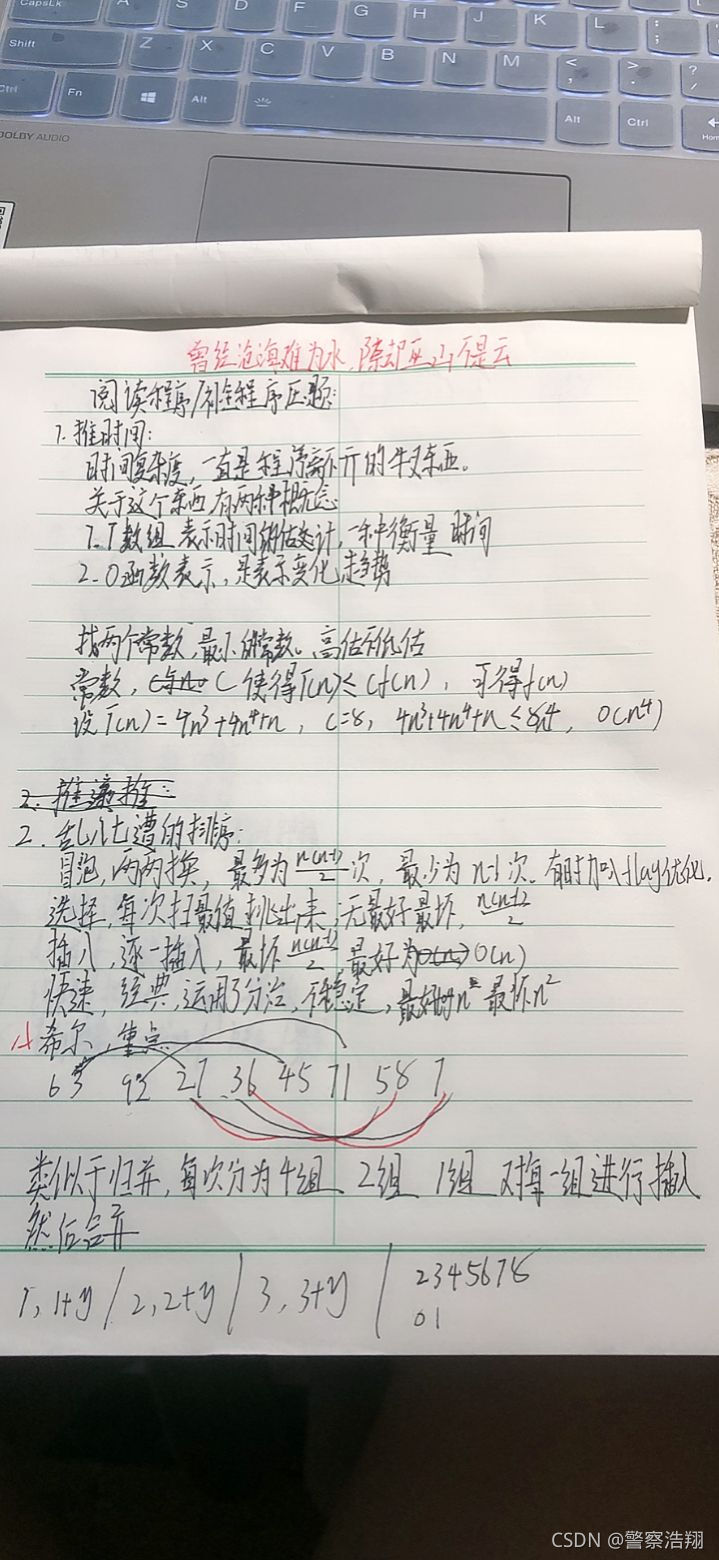 CapsLk A S D F G H J K L : ;
Shift Z X C V B N M < , > . ? /
Ctrl Fn Alt Alt Ctrl Home
DOLBY AUDIO
曾经沧海难为水,除却巫山不是云
阅读程序/补全程序区题:
1.推时间:
时间复杂度,一直是程序离不开的牛叉东西。
关于这个东西有两种概念
1.T数组 表示时间的估计,一种衡量时间
2.O函数表示,是表示变化趋势
找两个常数,最小的常数。高估和低估
常数, C 使得T(n)≤Cf(n),可得f(n)
设T(n)=4n³+4n⁴+n, C=8, 4n³+4n⁴+n≤8n⁴, O(n⁴)
2.推
2.乱七八遭的排序:
冒泡,两两换,最多为n(n-1)/2次,最少为n-1次。有时加入flag优化.
选择,每次扫最值挑出来,无最好最坏,n(n-1)/2
插入,逐一插入,最坏n(n-1)/2 最好为O(n) O(n)
快速,经典,运用了分治,不稳定, 最坏n²
希尔,重点
63 92 27 36 45 71 58 7
类似于归并,每次分为4组、2组、1组 对每一组进行插入
然后合并
1,1+y / 2,2+y / 3,3+y / 2345678
01
CSDN @警察浩翔